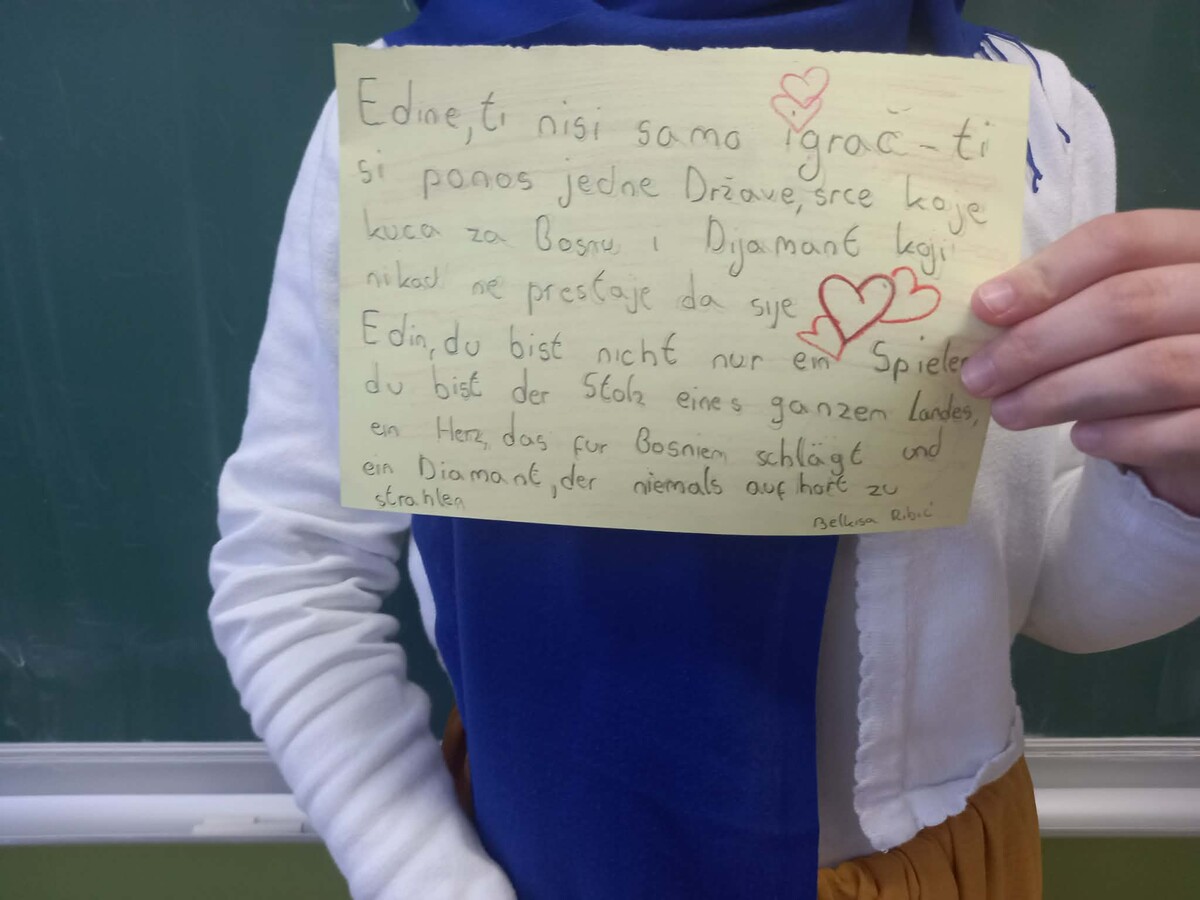 Edine, ti nisi samo igrač - ti
si ponos jedne Države, srce koje
kuca za Bosnu i Dijamant koji
nikad ne prestaje da sije
Edin, du bist nicht nur ein Spieler
du bist der Stolz eines ganzen Landes,
ein Herz, das fur Bosnien schlägt und
ein Diamant, der niemals aufhort zu
strahlen
Belkisa Ribić